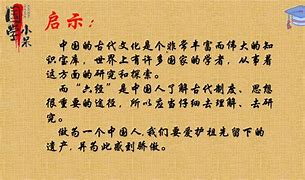 国学
小呆
启示：
中国的古代文化是个非常丰富而伟大的知
识宝库，世界上有许多国家的学者，从事着
这方面的研究和探索。
而“六经”是中国人了解古代制度、思想
很重要的途径，所以应当仔细去理解、去研
究。
做为一个中国人，我们要爱护祖先留下的
遗产，并为此感到骄傲。